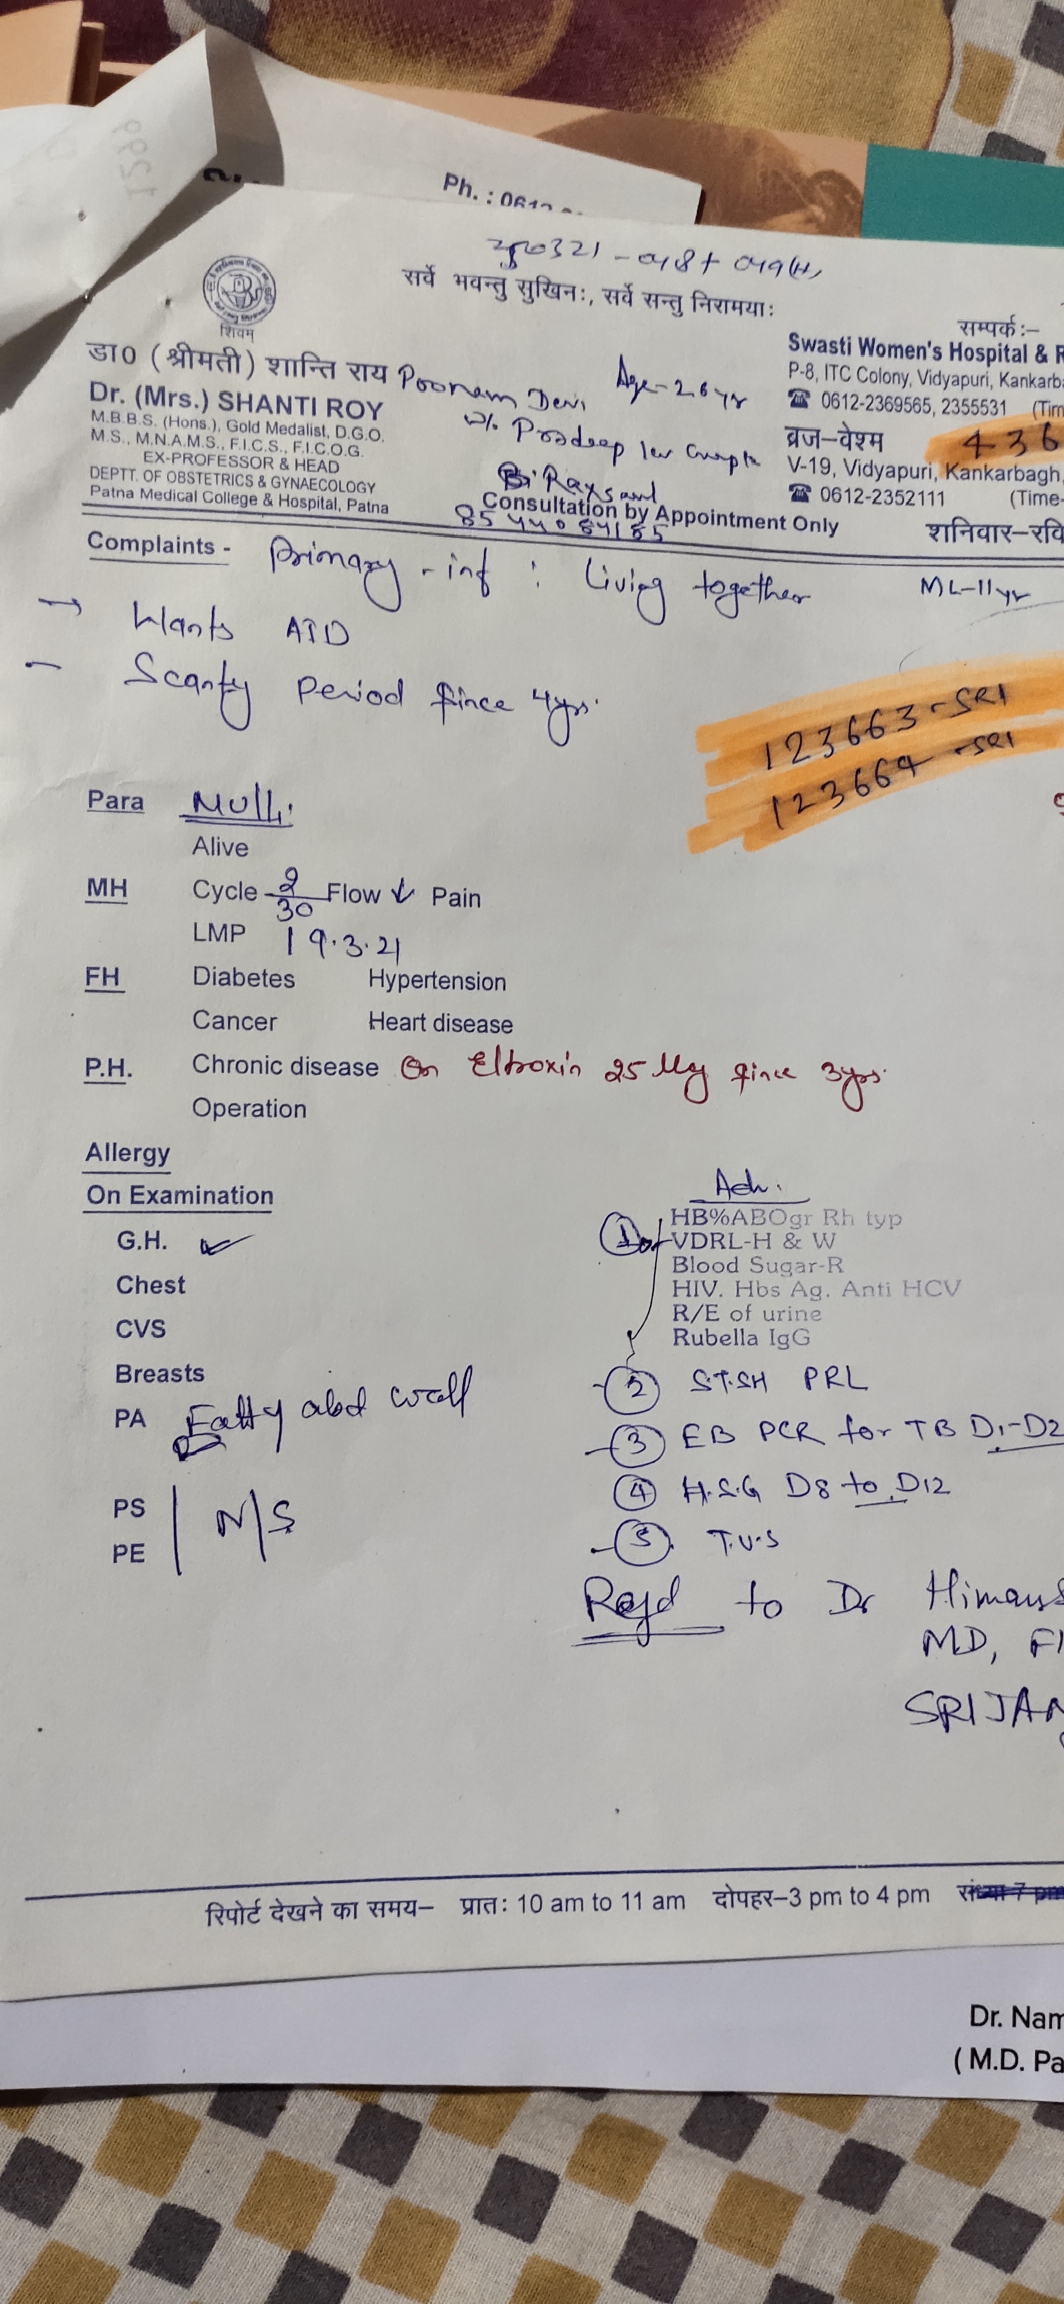 1299
Ph. : 0612
सर्वे भवन्तु सुखिनः, सर्वे सन्तु निरामयाः
शिवम्
सम्पर्क :–
डा० (श्रीमती) शान्ति राय
Dr. (Mrs.) SHANTI ROY
M.B.B.S. (Hons.), Gold Medalist, D.G.O.
M.S., M.N.A.M.S., F.I.C.S., F.I.C.O.G.
EX-PROFESSOR & HEAD
DEPTT. OF OBSTETRICS & GYNAECOLOGY
Patna Medical College & Hospital, Patna
Poonam Devi Age-26yr
w/o Pradeep
Consultation by Appointment Only
8544084185
Swasti Women's Hospital & R
P-8, ITC Colony, Vidyapuri, Kankarba
0612-2369565, 2355531 (Tim
ब्रज–वेश्म 436
V-19, Vidyapuri, Kankarbagh,
0612-2352111 (Time-
शनिवार–रवि
Complaints - Primary - inf : Living together ML-11yr
→ Wants
- Scanty Period since 4yrs.
123663-SRI
123664-SRI
Para Nulli
Alive
MH Cycle 2/30 Flow ↓ Pain
LMP 19.3.21
FH Diabetes Hypertension
Cancer Heart disease
P.H. Chronic disease On Eltroxin 25 Mcg since 3yrs.
Operation
Allergy
On Examination
G.H. ✓
Chest
CVS
Breasts
PA Fatty abd wall
PS
PE N/S
Adv.
1 HB%ABOgr Rh typ
VDRL-H & W
Blood Sugar-R
HIV. Hbs Ag. Anti HCV
R/E of urine
Rubella IgG
2 S.TSH PRL
3 EB PCR for TB D1-D2
4 H.S.G D8 to D12
5 T.V.S
to Dr Himans
MD, FI
SRIJAN
रिपोर्ट देखने का समय– प्रातः 10 am to 11 am दोपहर–3 pm to 4 pm संध्या 7 pm
Dr. Nam
( M.D. Pa